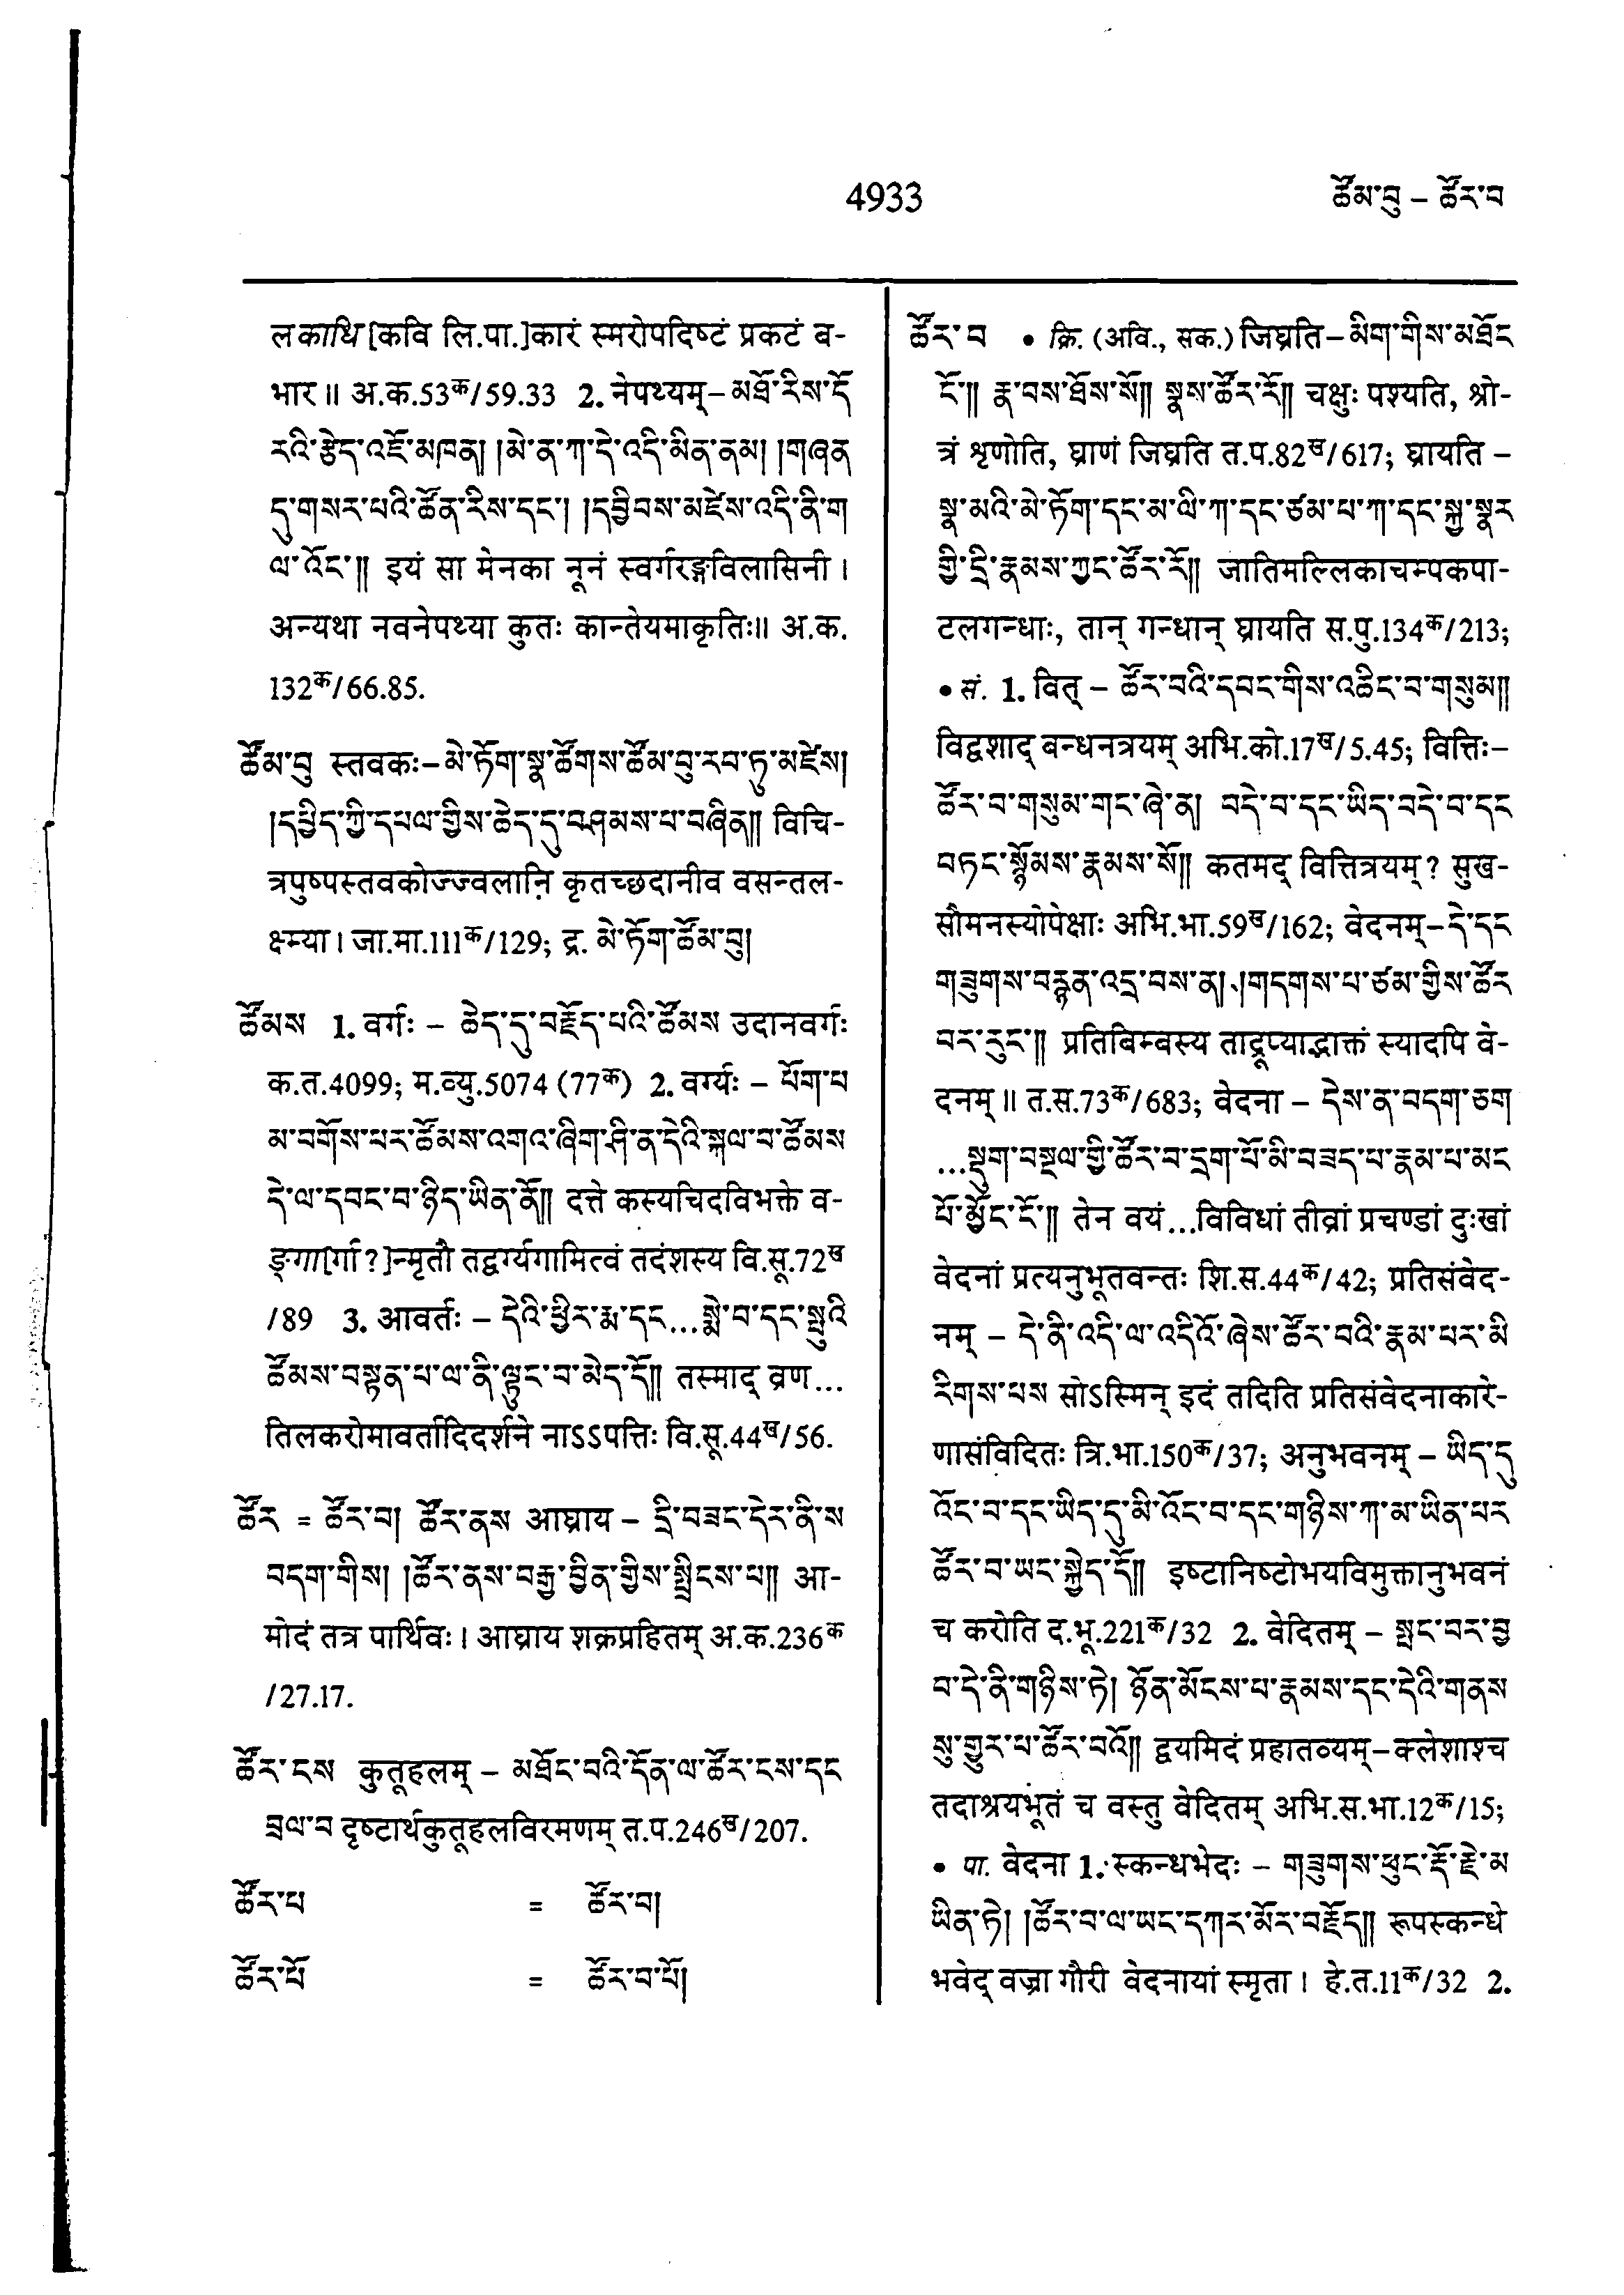 4933
ཚོམ་བུ – ཚོར་བ
लकाधि [कवि लि.पा.]कारं स्मरोपदिष्टं प्रकटं ब-
भार॥ अ.क.53क/59.33 2. नेपथ्यम् – མཐོ་རིས་དོ
རའི་རྩེད་འཇོ་མཁན། །མེ་ན་ཀ་དེ་འདི་མིན་ནམ། །གཞན
དུ་གསར་པའི་ཚོན་རིས་དང་། །དབྱིབས་མཛེས་འདི་ནི་ག
ལ་འོང་༎ इयं सा मेनका नूनं स्वर्गरङ्गविलासिनी।
अन्यथा नवनेपथ्या कुतः कान्तेयमाकृतिः॥ अ.क.
132क/66.85.
ཚོམ་བུ स्तवकः – མེ་ཏོག་སྣ་ཚོགས་ཚོམ་བུ་རབ་ཏུ་མཛེས།
།དཔྱིད་ཀྱི་དཔལ་གྱིས་ཆེད་དུ་བཤམས་པ་བཞིན༎ विचि-
त्रपुष्पस्तवकोज्ज्वलानि कृतच्छदानीव वसन्तल-
क्ष्म्या। जा.मा.111क/129; द्र. མེ་ཏོག་ཚོམ་བུ།
ཚོམས 1. वर्गः – ཆེད་དུ་བརྗོད་པའི་ཚོམས उदानवर्गः
क.त.4099; म.व्यु.5074 (77क) 2. वर्ग्यः – པོག་པ
མ་བགོས་པར་ཚོམས་འགའ་ཞིག་ཤི་ན་དེའི་སྐལ་བ་ཚོམས
དེ་ལ་དབང་བ་ཉིད་ཡིན་ནོ༎ दत्ते कस्यचिदविभक्ते व-
ङ्गा[र्गा?]न्मृतौ तद्वर्ग्यगामित्वं तदंशस्य वि.सू.72ख
/89 3. आवर्तः – དེའི་ཕྱིར་རྨ་དང...སྨེ་བ་དང་སྤུའི
ཚོམས་བསྟན་པ་ལ་ནི་ལྟུང་བ་མེད་དོ༎ तस्माद् व्रण...
तिलकरोमावर्तादिदर्शने नाऽऽपत्तिः वि.सू.44ख/56.
ཚོར = ཚོར་བ། ཚོར་ནས आघ्राय – དྲི་བཟང་དེར་ནི་ས
བདག་གིས། །ཚོར་ནས་བརྒྱ་བྱིན་གྱིས་སྤྲིངས་པ༎ आ-
मोदं तत्र पार्थिवः। आघ्राय शक्रप्रहितम् अ.क.236क
/27.17.
ཚོར་ངས कुतूहलम् – མཐོང་བའི་དོན་ལ་ཚོར་ངས་དང
བྲལ་བ दृष्टार्थकुतूहलविरमणम् त.प.246ख/207.
ཚོར་པ = ཚོར་བ།
ཚོར་པོ = ཚོར་བ་པོ།
ཚོར་བ • क्रि. (अवि., सक.) जिघ्रति – མིག་གིས་མཐོང
ངོ་༎ རྣ་བས་ཐོས་སོ༎ སྣས་ཚོར་རོ༎ चक्षुः पश्यति, श्रो-
त्रं शृणोति, घ्राणं जिघ्रति त.प.82ख/617; घ्रायति –
སྣ་མའི་མེ་ཏོག་དང་མ་ལི་ཀ་དང་ཙམ་པ་ཀ་དང་སྐྱ་སྣར
གྱི་དྲི་རྣམས་ཀྱང་ཚོར་རོ༎ जातिमल्लिकाचम्पकपा-
टलगन्धाः, तान् गन्धान् घ्रायति स.पु.134क/213;
• सं. 1. वित् – ཚོར་བའི་དབང་གིས་འཆིང་བ་གསུམ༎
विद्वशाद् बन्धनत्रयम् अभि.को.17ख/5.45; वित्तिः –
ཚོར་བ་གསུམ་གང་ཞེ་ན། བདེ་བ་དང་ཡིད་བདེ་བ་དང
བཏང་སྙོམས་རྣམས་སོ༎ कतमद् वित्तित्रयम्? सुख-
सौमनस्योपेक्षाः अभि.भा.59ख/162; वेदनम् – དེ་དང
གཟུགས་བརྙན་འདྲ་བས་ན། །གདགས་པ་ཙམ་གྱིས་ཚོར
བར་རུང་༎ प्रतिबिम्बस्य ताद्रूप्याद्भाक्तं स्यादपि वे-
दनम्॥ त.स.73क/683; वेदना – དེས་ན་བདག་ཅག
...སྡུག་བསྔལ་གྱི་ཚོར་བ་དྲག་པོ་མི་བཟད་པ་རྣམ་པ་མང
པོ་མྱོང་ངོ་༎ तेन वयं...विविधां तीव्रां प्रचण्डां दुःखां
वेदनां प्रत्यनुभूतवन्तः शि.स.44क/42; प्रतिसंवेद-
नम् – དེ་ནི་འདི་ལ་འདིའོ་ཞེས་ཚོར་བའི་རྣམ་པར་མི
རིགས་པས सोऽस्मिन् इदं तदिति प्रतिसंवेदनाकारे-
णासंविदितः त्रि.भा.150क/37; अनुभवनम् – ཡིད་དུ
འོང་བ་དང་ཡིད་དུ་མི་འོང་བ་དང་གཉིས་ཀ་མ་ཡིན་པར
ཚོར་བ་ཡང་སྐྱེད་དོ༎ इष्टानिष्टोभयविमुक्तानुभवनं
च करोति द.भू.221क/32 2. वेदितम् – སྤང་བར་བྱ
བ་དེ་ནི་གཉིས་ཏེ། ཉོན་མོངས་པ་རྣམས་དང་དེའི་གནས
སུ་གྱུར་པ་ཚོར་བའོ༎ द्वयमिदं प्रहातव्यम् – क्लेशाश्च
तदाश्रयभूतं च वस्तु वेदितम् अभि.स.भा.12क/15;
• पा. वेदना 1. स्कन्धभेदः – གཟུགས་ཕུང་རྡོ་རྗེ་མ
ཡིན་ཏེ། །ཚོར་བ་ལ་ཡང་དཀར་མོར་བརྗོད༎ रूपस्कन्धे
भवेद् वज्रा गौरी वेदनायां स्मृता। हे.त.11क/32 2.